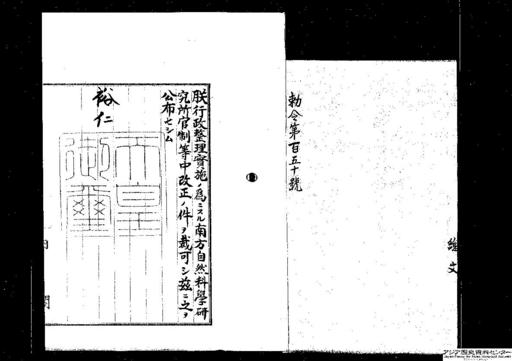 朕行政整理實施ノ爲ニスル南方自然科學研
究所官制等中改正ノ件ヲ裁可シ茲ニ之ヲ
公布セシム
裕仁
天皇
御璽
勅令第百五十號
內
閣
アジア歴史資料センター